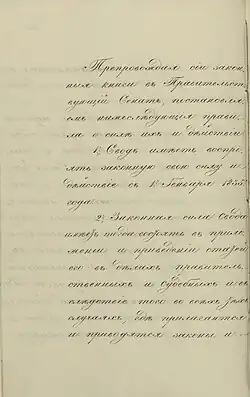 Препровождая сіи закон-
ныя книги въ Правительст-
вующій Сенатъ, постановля-
емъ нижеслѣдующія прави-
ла о силѣ ихъ и дѣйствіи
1. Сводъ имѣетъ воспрі-
ять законную свою силу и
дѣйствіе съ 1º Генваря 1835
года.
2. Законная сила Свода
имѣетъ состоять въ прило-
женіи и приведеніи статей
его въ дѣлахъ правитель-
ственныхъ и судебныхъ и въ
слѣдствіе того во всѣхъ тѣхъ
случаяхъ гдѣ прилагаются
и приводятся законы и